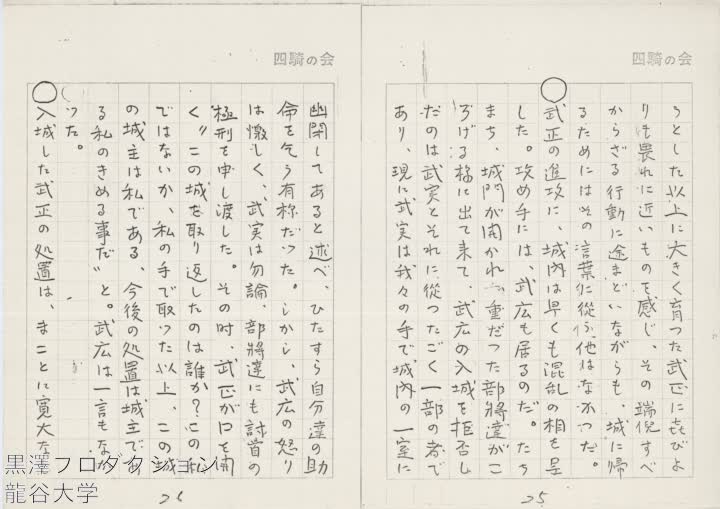 四騎の会
うとした以上に大きく育った武正に喜びよ
りも畏れに近いものを感じ、その端倪すべ
からざる行動に途まどいながらも、城に帰
るためにはその言葉に従ふ他はなかつた。
武正の進攻に、城内は早くも混乱の相を呈
した。攻め手には、武広も居るのだ。たち
まち、城門が開かれ、重だった部将達がこ
ろげる様に出て来て、武広の入城を拒否し
だのは武実とそれに従ったごく一部の者で
あり、現に武実は我々の手で城内の一室に
25
四騎の会
幽閉してあると述べ、ひたすら自分達の助
命を乞う有様だった。しかし、武広の怒り
は激しく、武実は勿論、部将達にも討首の
極刑を申し渡した。その時、武正が口を開
く〝この城を取り返したのは誰か?この私
ではないか、私の手で取った以上、この城
の城主は私である、今後の処置は城主であ
る私のきめる事だ〟と。武広は一言もなか
った。
入城した武正の処置は、まことに寛大な
26
黒澤プロダクション/
龍谷大学